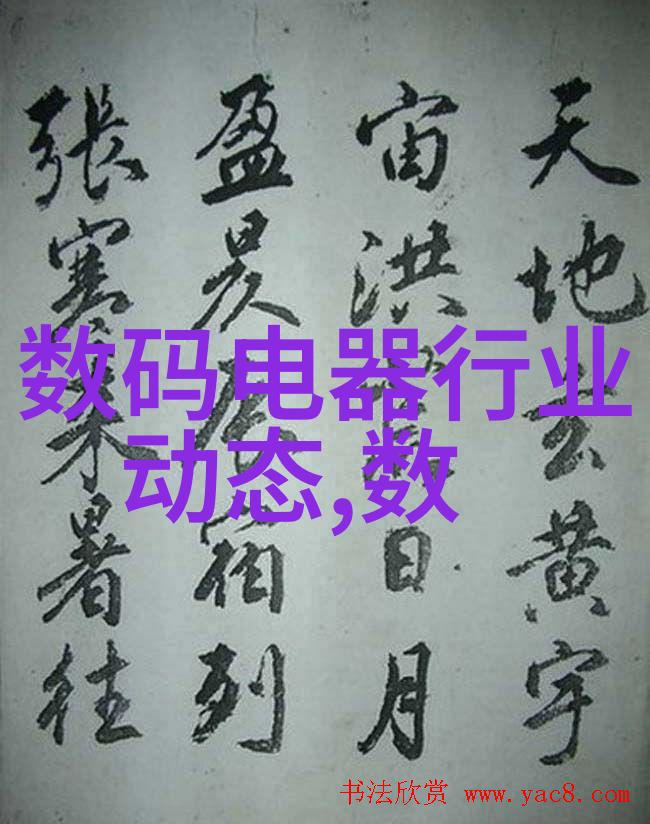 天地玄黄宇
宙洪日月
盈昃辰宿列
張寒来暑往
数码电器行业
动态,数
书法欣赏 www.yac8.com